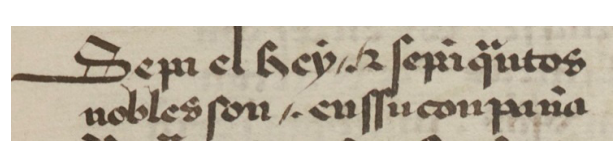 Sepa el Rey /. & sepã qũtos
nobles son /. en ssu conpan̄a